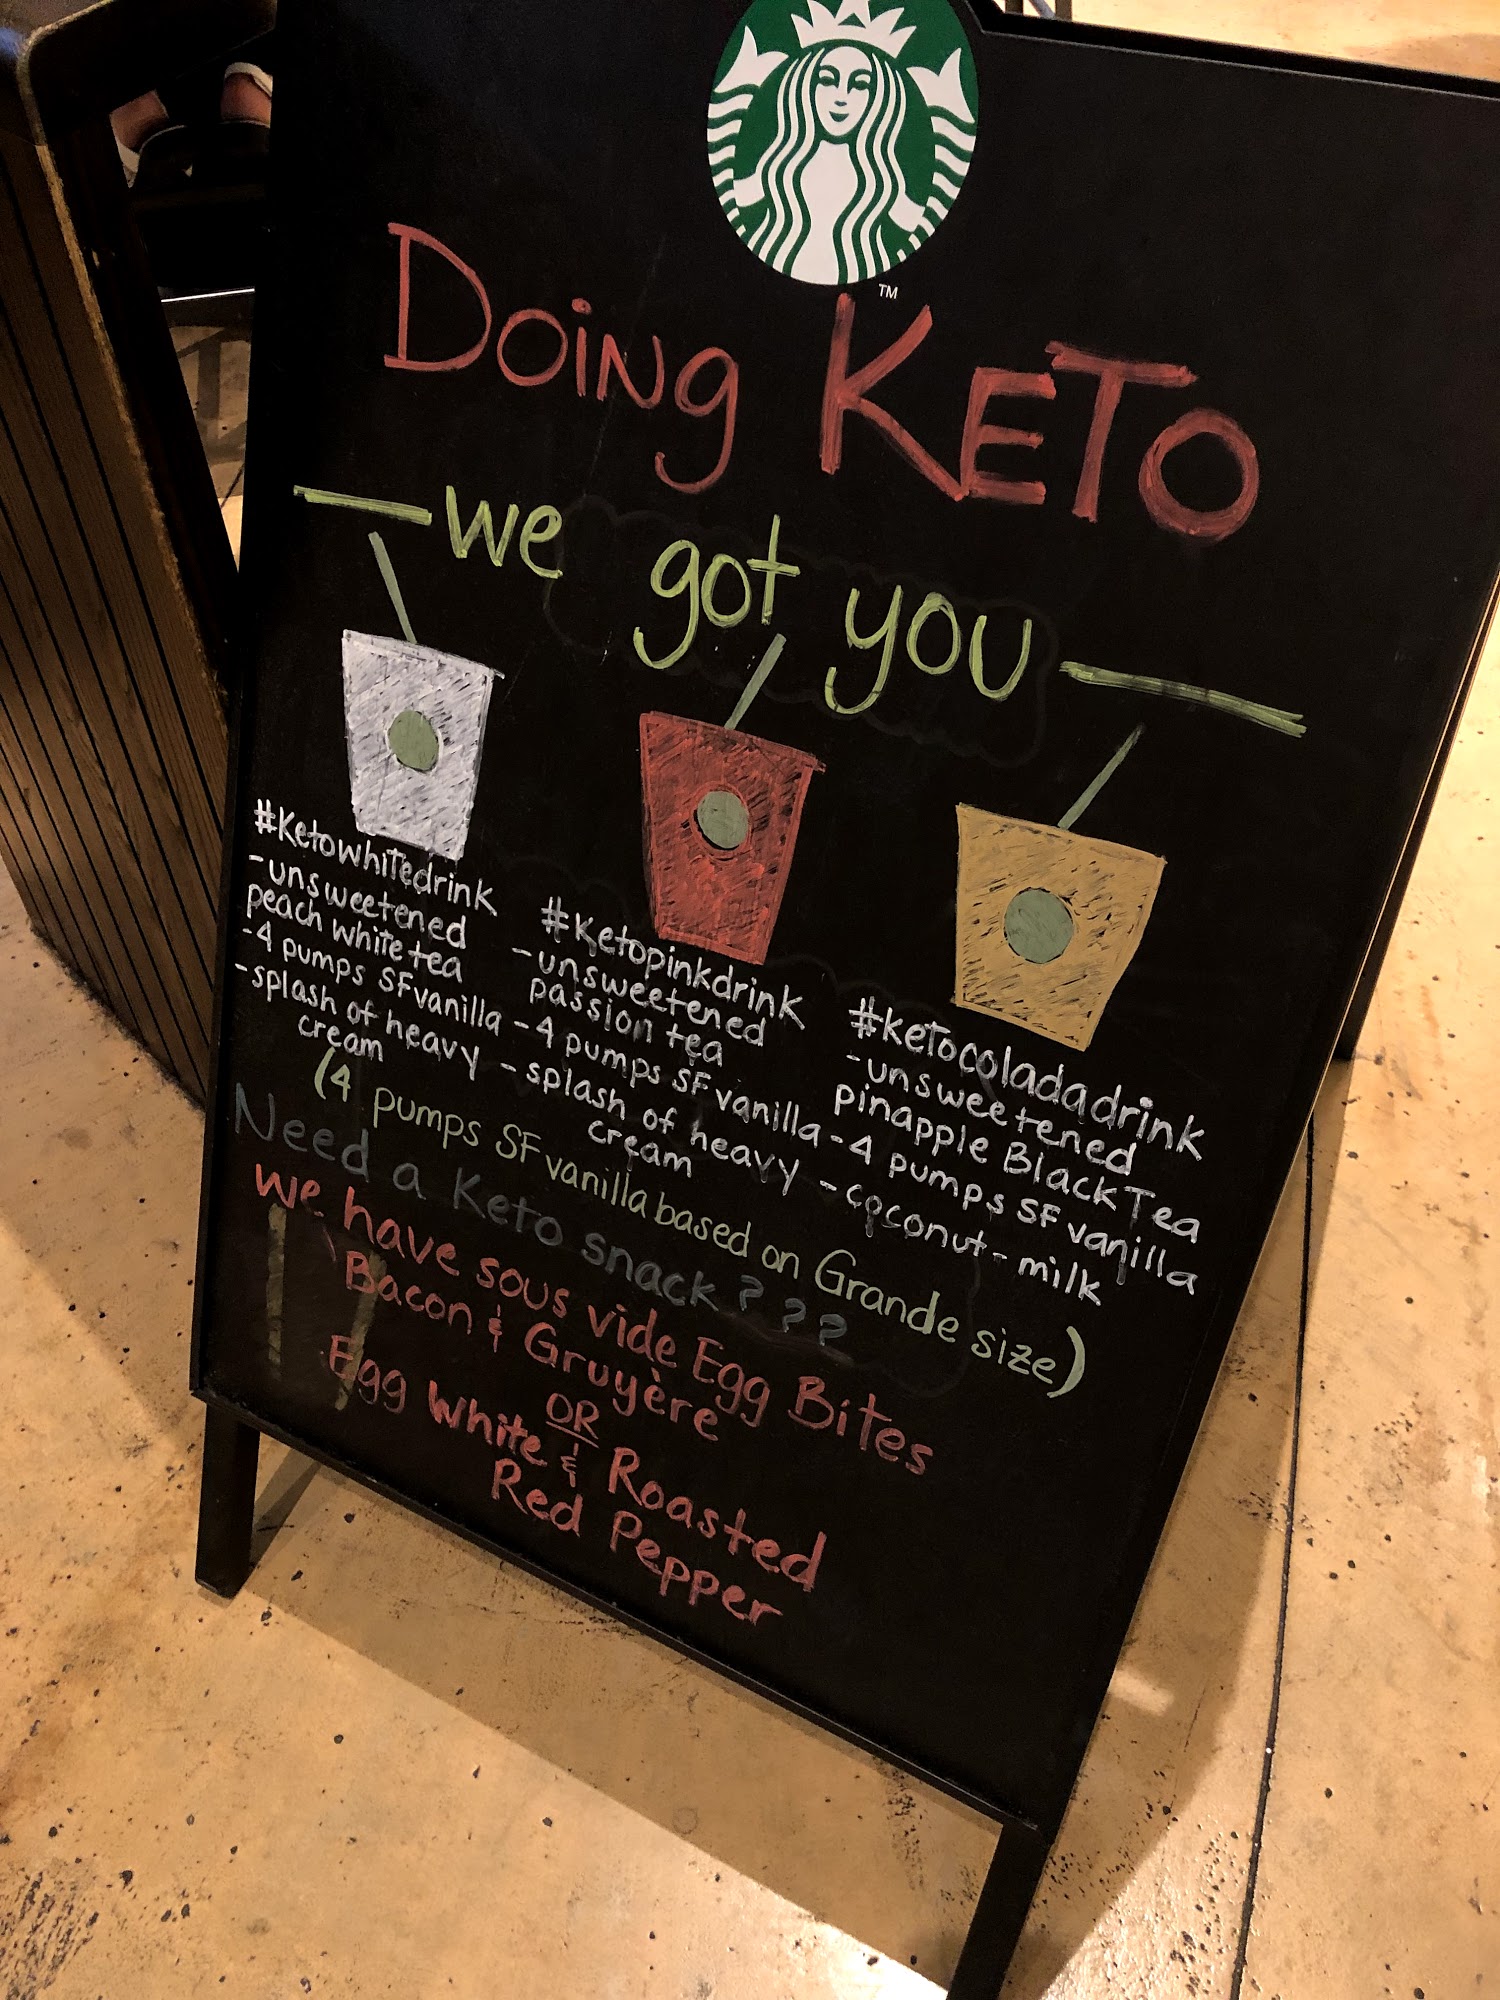 TM
DOiNg KETO
we got you
#Ketowhitedrink
-unsweetened
peach white tea
-4 pumps SF vanilla
-splash of heavy
cream
#Ketopinkdrink
-unsweetened
passion tea
-4 pumps SF vanilla
-splash of heavy
cream
#ketocoladadrink
-unsweetened
pinapple Black Tea
-4 pumps SF vanilla
-coconut-milk
(4 pumps SF vanilla based on Grande size)
Need a Keto snack???
we have sous vide Egg Bites
Bacon & Gruyère
OR
Egg White & Roasted
Red Pepper